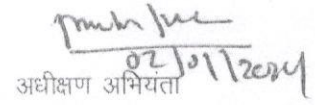 02/01/2024
अधीक्षण अभियंता